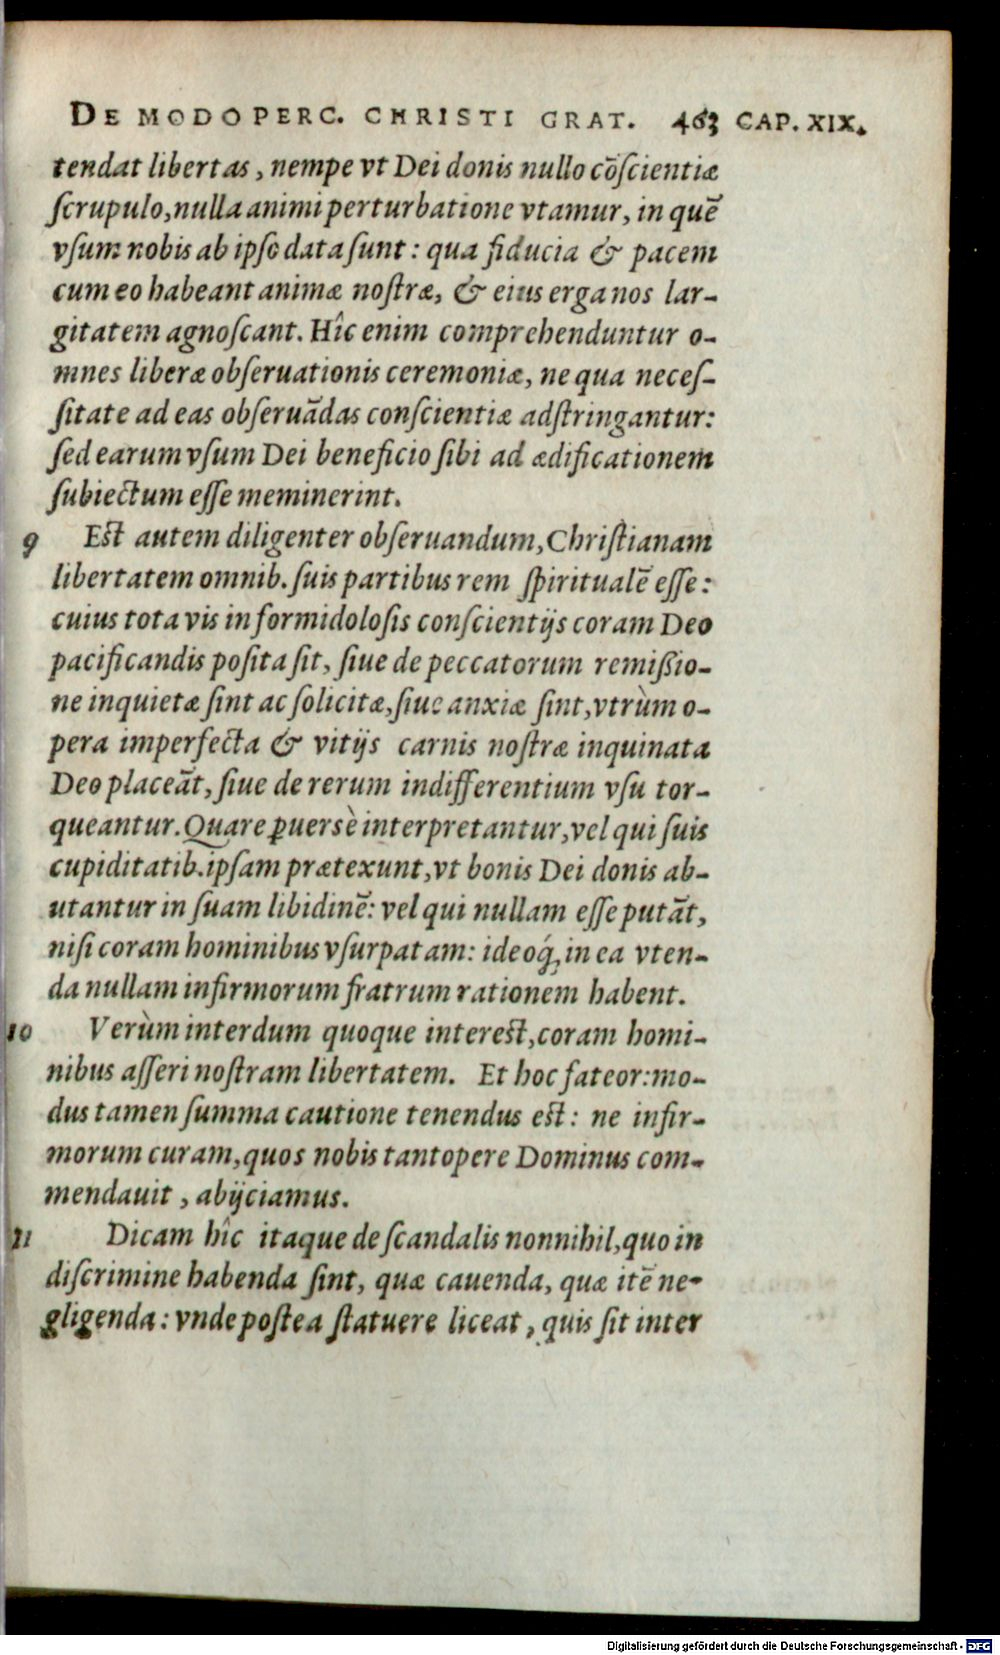 DE MODO PERC. CHRISTI GRAT. 463 CAP. XIX.
tendat libertas, nempe vt Dei donis nullo cōſcientiæ
ſcrupulo, nulla animi perturbatione vtamur, in quē
vſum nobis ab ipſo data ſunt: qua fiducia & pacem
cum eo habeant animæ noſtræ, & eius erga nos lar-
gitatem agnoſcant. Hîc enim comprehenduntur o-
mnes liberæ obſeruationis ceremoniæ, ne qua neceſ-
ſitate ad eas obſeruādas conſcientiæ adſtringantur:
ſed earum vſum Dei beneficio ſibi ad ædificationem
ſubiectum eſſe meminerint.
9 Eſt autem diligenter obſeruandum, Chriſtianam
libertatem omnib. ſuis partibus rem ſpiritualē eſſe:
cuius tota vis in formidoloſis conſcientijs coram Deo
pacificandis poſita ſit, ſiue de peccatorum remiſſio-
ne inquietæ ſint ac ſolicitæ, ſiue anxiæ ſint, vtrùm o-
pera imperfecta & vitijs carnis noſtræ inquinata
Deo placeāt, ſiue de rerum indifferentium vſu tor-
queantur. Quare ꝑuersè interpretantur, vel qui ſuis
cupiditatib. ipſam prætexunt, vt bonis Dei donis ab-
utantur in ſuam libidinē: vel qui nullam eſſe putāt,
niſi coram hominibus vſurpatam: ideoq́; in ea vten-
da nullam infirmorum fratrum rationem habent.
10 Verùm interdum quoque intereſt, coram homi-
nibus aſſeri noſtram libertatem. Et hoc fateor: mo-
dus tamen ſumma cautione tenendus eſt: ne infir-
morum curam, quos nobis tantopere Dominus com-
mendauit, abijciamus.
11 Dicam hîc itaque de ſcandalis nonnihil, quo in
diſcrimine habenda ſint, quæ cauenda, quæ itē ne-
gligenda: vnde poſtea ſtatuere liceat, quis ſit inter
Digitalisierung gefördert durch die Deutsche Forschungsgemeinschaft - DFG